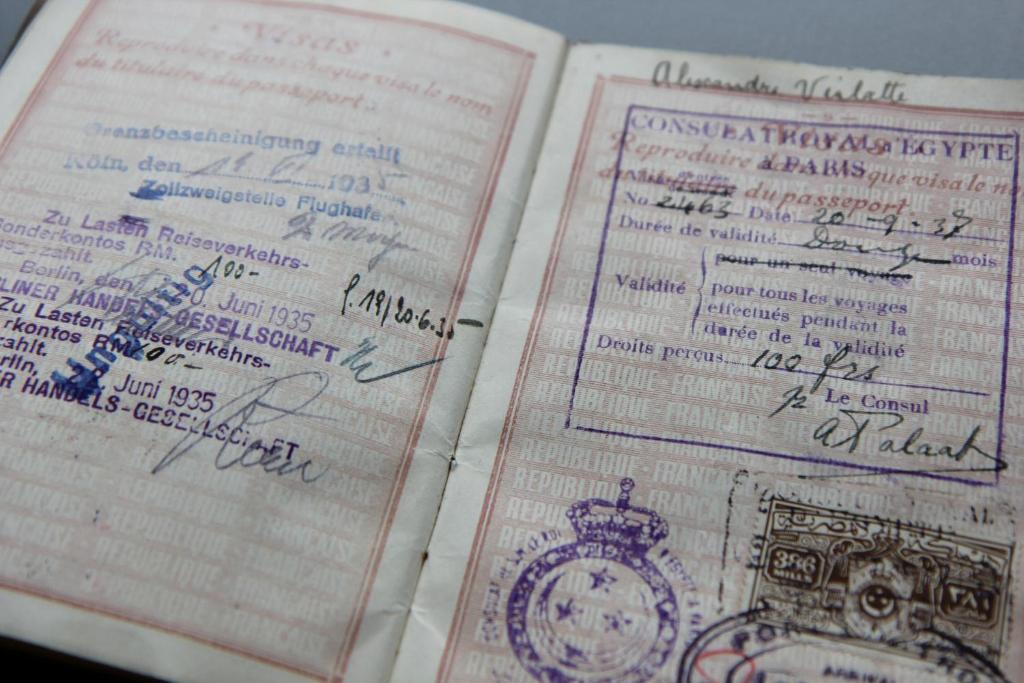 Visas
Reproduire dans chaque visa le nom
du titulaire du passeport.
Grenzbescheinigung erteilt
Köln, den 19. 6. 1935
Zollzweigstelle Flughafen
Zu Lasten Reiseverkehrs-
Sonderkontos RM. 100.-
zahlt.
Berlin, den 0. Juni 1935
LINER HANDELS-GESELLSCHAFT
p. 19/20.6.35
Zu Lasten Reiseverkehrs-
rkontos RM. 200.-
zahlt.
rlin, Juni 1935
ER HANDELS-GESELLSCHAFT
Alexandre Vialatte
CONSULAT ROYAL d'EGYPTE
à PARIS
Reproduire que visa le no
du passeport
No 2463 Date 20-9-37
Durée de validité Douze mois
pour un seul voyage
Validité
pour tous les voyages
effectués pendant la
durée de la validité
Droits perçus 100 frs
Le Consul
RÉPUBLIQUE FRANÇAISE
386
MILLS
٣٨٦